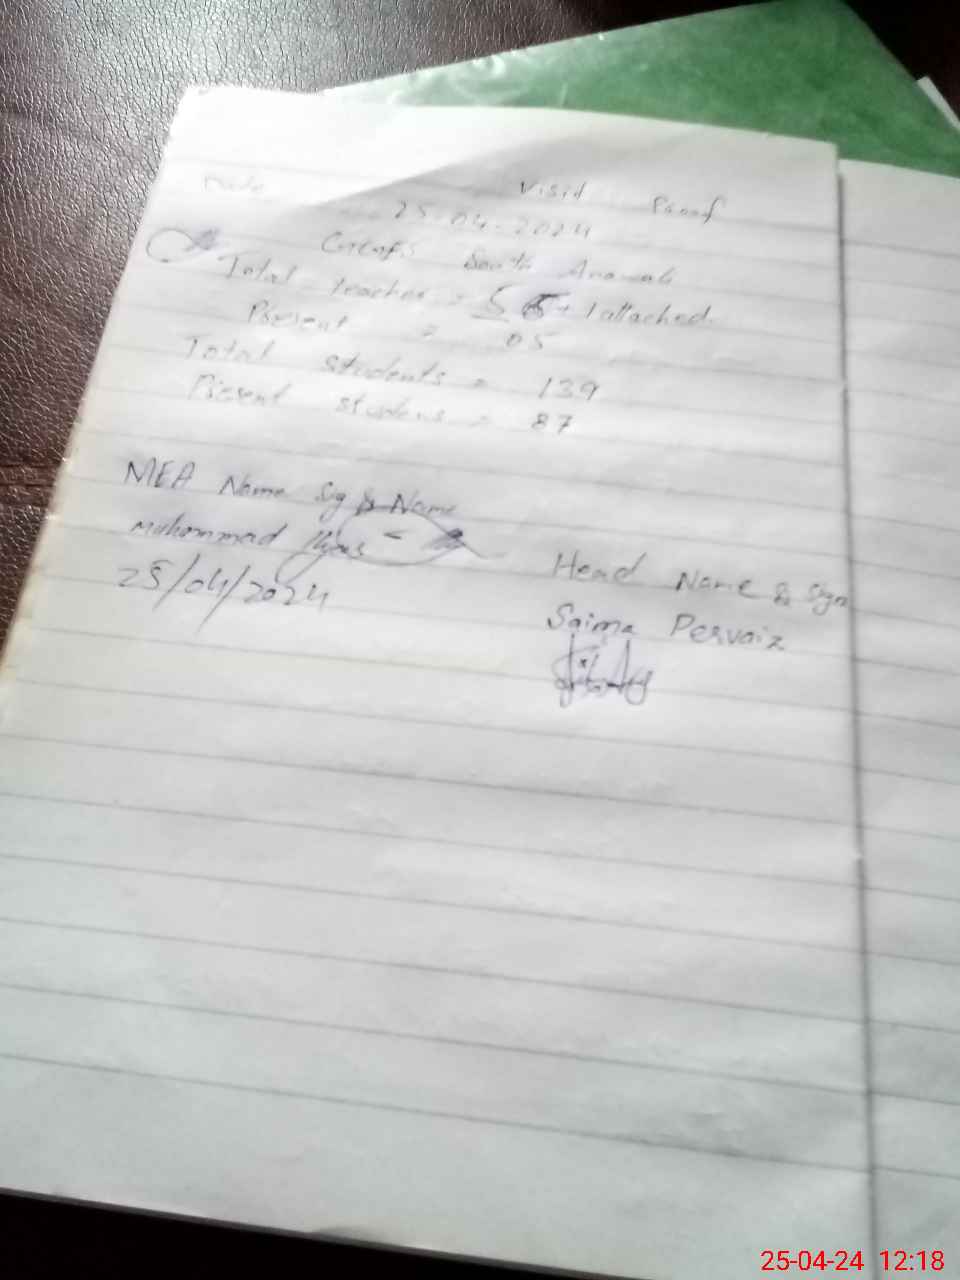 Visit Proof
25-04-2024
South
Total teacher = 5 + 1 attached.
Present = 05
Total students = 139
Present students = 87
MEA Name Sig & Name
Muhammad Ilyas
25/04/2024
Head Name & Sign
Saima Pervaiz
25-04-24 12:18